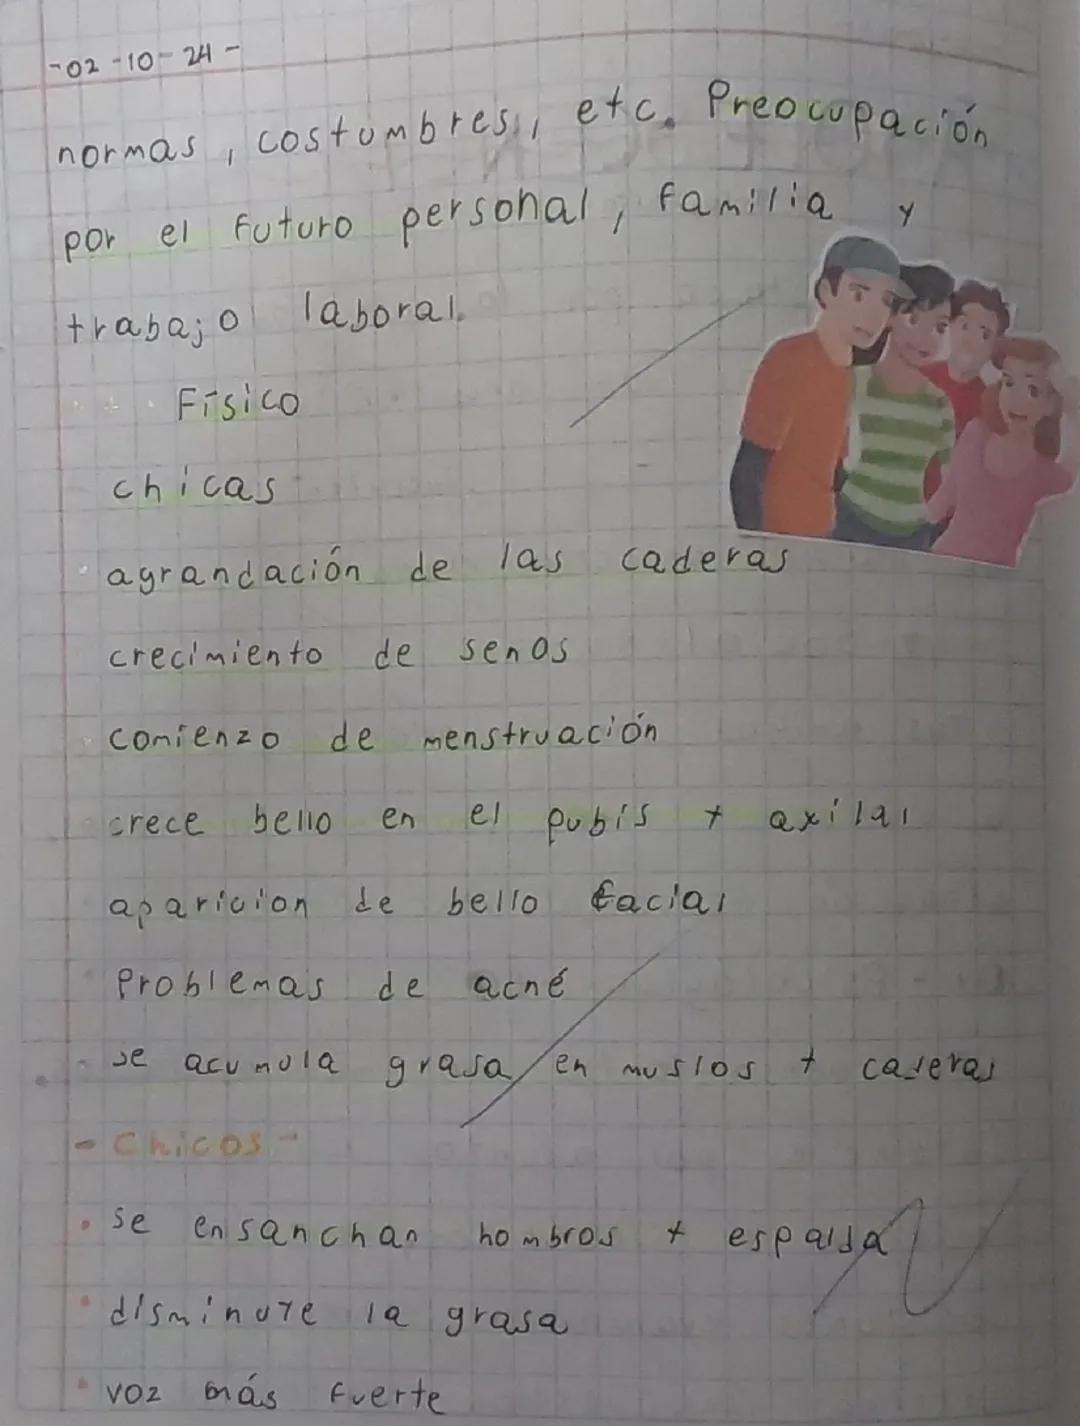 -02-10-24-
normas, costumbres, etc. Preocupación
por el futuro personal, familia y
trabajo laboral.
Físico
chicas
agrandación de las caderas
crecimiento de senos
comienzo de menstruación
crece bello en el pubis + axilas
aparicion de bello facial
Problemas de acné
se acumula grasa en muslos + caderas
- Chicos -
• se ensanchan hombros + espalda
• disminuye la grasa
• voz más fuerte